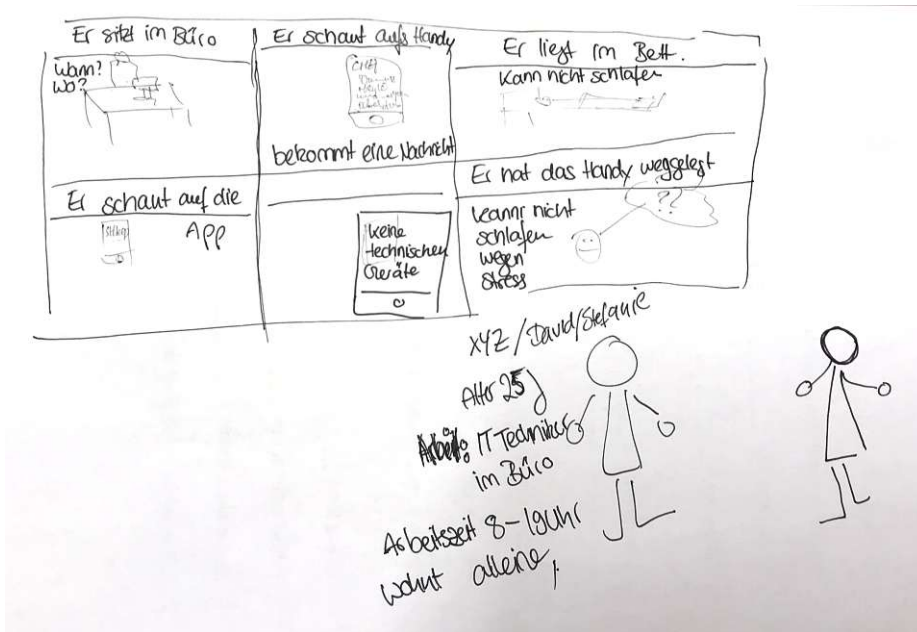 Er sitzt im Büro
Wann?
Wo?
Er schaut aufs Handy
CHEF
bekommt eine Nachricht
Er liegt im Bett.
Kann nicht schlafen
Er schaut auf die
App
keine
technischen
Geräte
Er hat das Handy weggelegt
kann nicht
schlafen
wegen
Stress
??
XYZ/David/Stefanie
Alter 25J
Arbeit: IT Techniker
im Büro
Arbeitszeit 8-19Uhr
wohnt alleine,